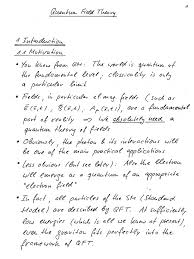 Quantum Field Theory
1 Introduction
1.1 Motivation
• You know from QM: The world is quantum at
the fundamental level, classicality is only
a particular limit
• Fields, in particular el.mag. fields, (such as
E(x,t), B(x,t), Aμ(x,t)), are a fundamental
part of reality ⇒ We absolutely need a
quantum theory of fields
• Obviously, the photon & its interactions will
be one of the main outcomes of this enterprise.
• Less obvious (but see later): Also the electron
will emerge as a quantum of an appropriate
"electron field"
• In fact, all particles of the SM (Standard
Model) are described by QFT. At sufficiently
low energies (which is all we know at present),
even the graviton fits perfectly into the
framework of QFT.